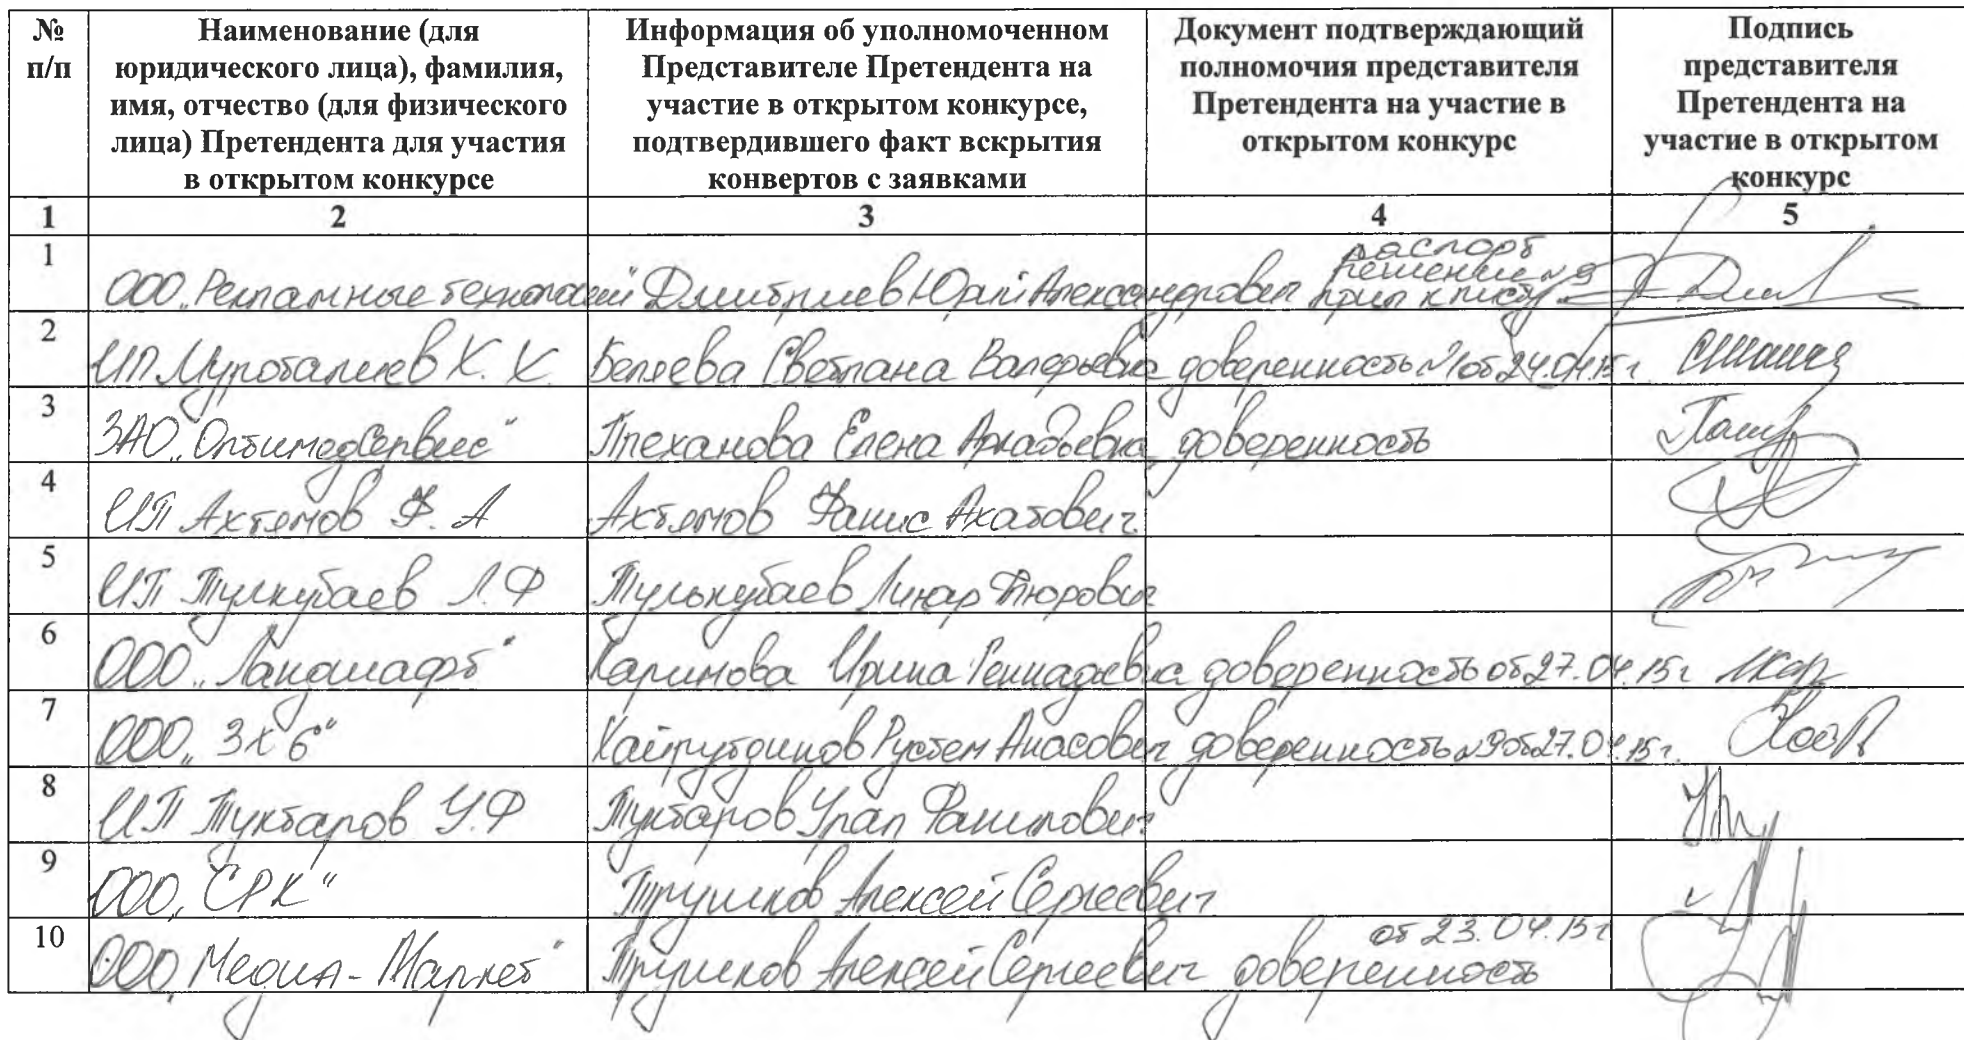 № п/п
Наименование (для юридического лица), фамилия, имя, отчество (для физического лица) Претендента для участия в открытом конкурсе
Информация об уполномоченном Представителе Претендента на участие в открытом конкурсе, подтвердившего факт вскрытия конвертов с заявками
Документ подтверждающий полномочия представителя Претендента на участие в открытом конкурс
Подпись представителя Претендента на участие в открытом конкурс
1 2 3 4 5
1 ООО „Рекламные технологии" Дмитриев Юрий Александрович паспорт решение №9
2 ИП Муроталиев Х. Х. Беляева Светлана Валерьевна доверенность №1 от 24.04.15 г
3 ЗАО „ОптимедСервис" Плеханова Елена Аркадьевна доверенность
4 ИП Ахтямов Ф. А Ахтямов Фанис Ахатович
5 ИП Тулкубаев Л.Ф Тулькубаев Линар Флюрович
6 ООО „Ландшафт" Каримова Ирина Геннадьевна доверенность от 27.04.15 г
7 ООО „3х6" Хайрутдинов Рустем Анасович доверенность №9 от 27.04.15 г.
8 ИП Туктаров У.Ф Туктаров Урал Фанилович
9 ООО „СРК" Трушков Алексей Сергеевич
10 ООО „Медиа-Маркет" Трушков Алексей Сергеевич доверенность от 23.04.15 г